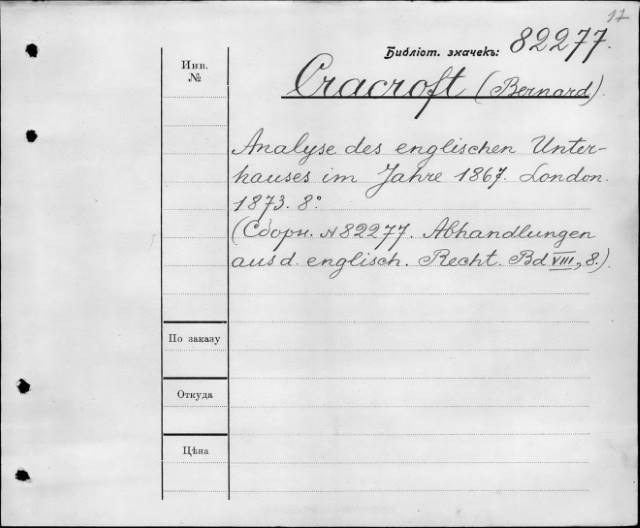 17
Библіот. значекъ: 82277.
Инв.
№
Cracroft (Bernard).
Analyse des englischen Unter-
hauses im Jahre 1867. London.
1873. 8°
(Сборн. №82277. Abhandlungen
aus d. englisch. Recht. Bd VIII, 8.)
По заказу
Откуда
Цѣна